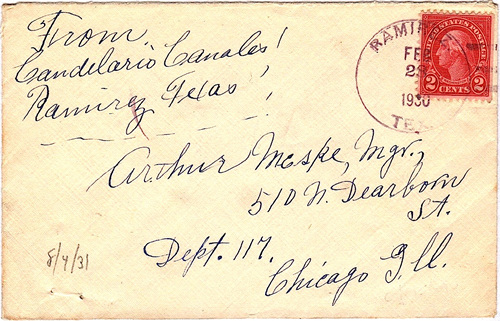 From
Candelario Canales!
Ramirez, Texas!
RAMIR
FEB
23
1930
TEX
UNITED STATES POSTAGE
2 CENTS 2
Arthur Meske, Mgr.,
510 N. Dearborn
St.
Dept. 117.
Chicago Ill.
8/4/31